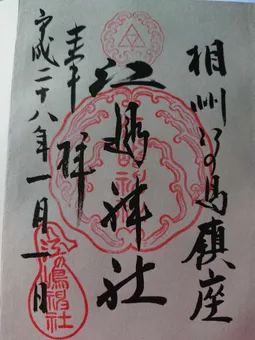 相州江の島鎮座
江嶋神社
奉拝
平成二十八年一月一日
江嶋神社